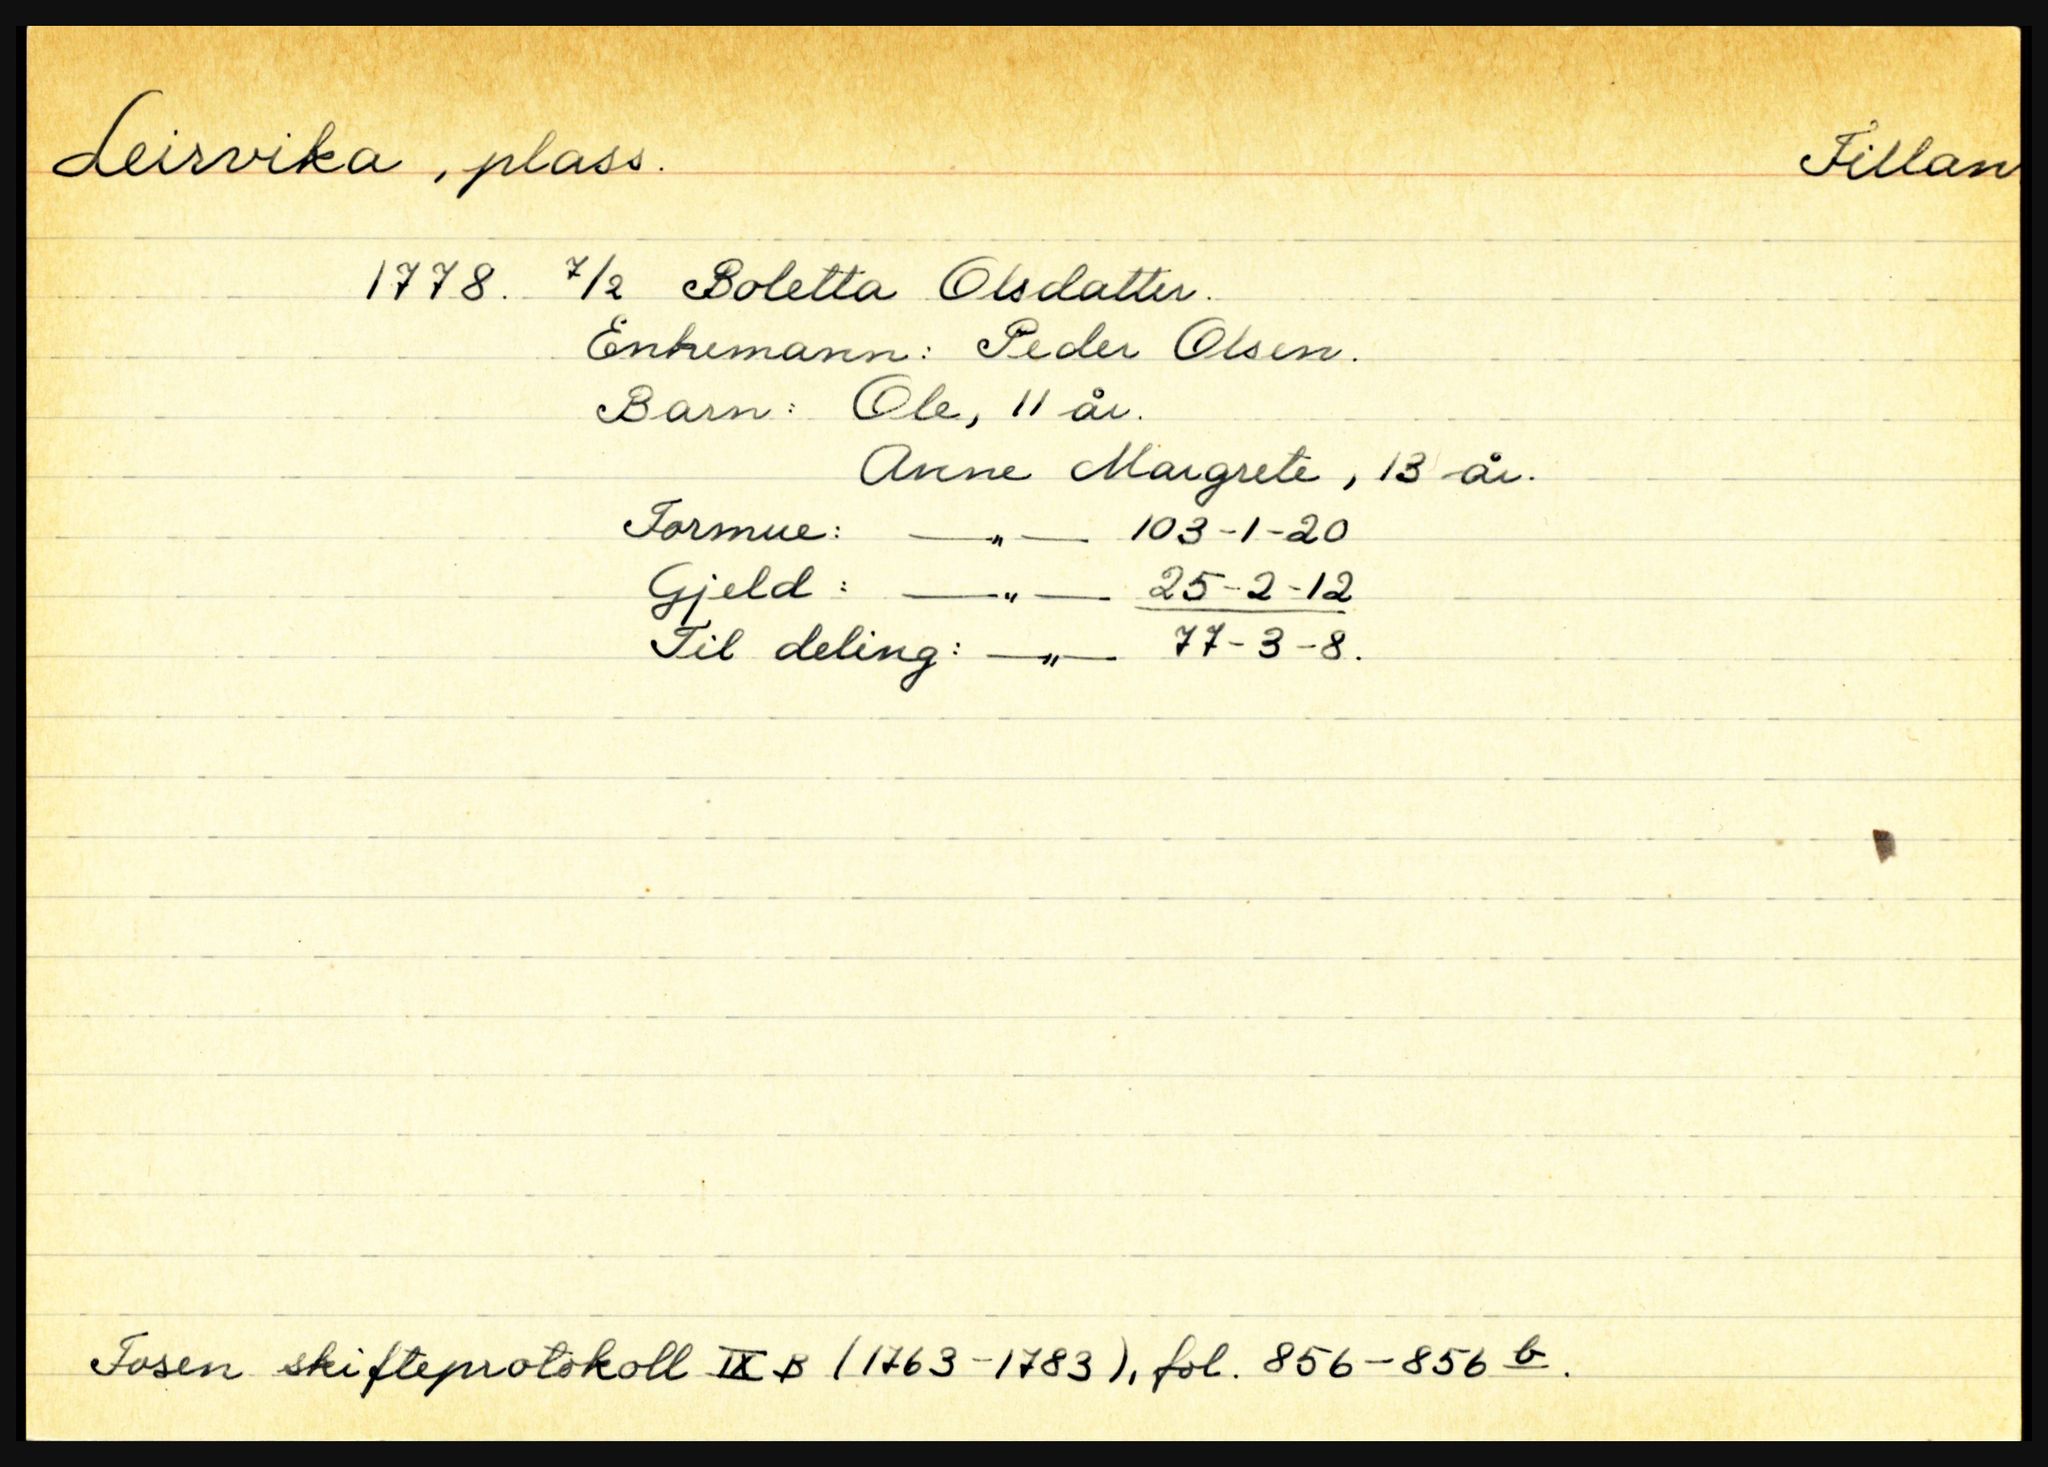 Leirvika, plass. Fillan
1778. 7/2 Boletta Olsdatter.
Enkemann: Peder Olsen.
Barn: Ole, 11 år.
Anne Margrete, 13 år.
Formue: —„— 103-1-20
Gjeld: —„— 25-2-12
Til deling: —„— 77-3-8.
Fosen skifteprotokoll IX B (1763-1783), fol. 856-856 b.